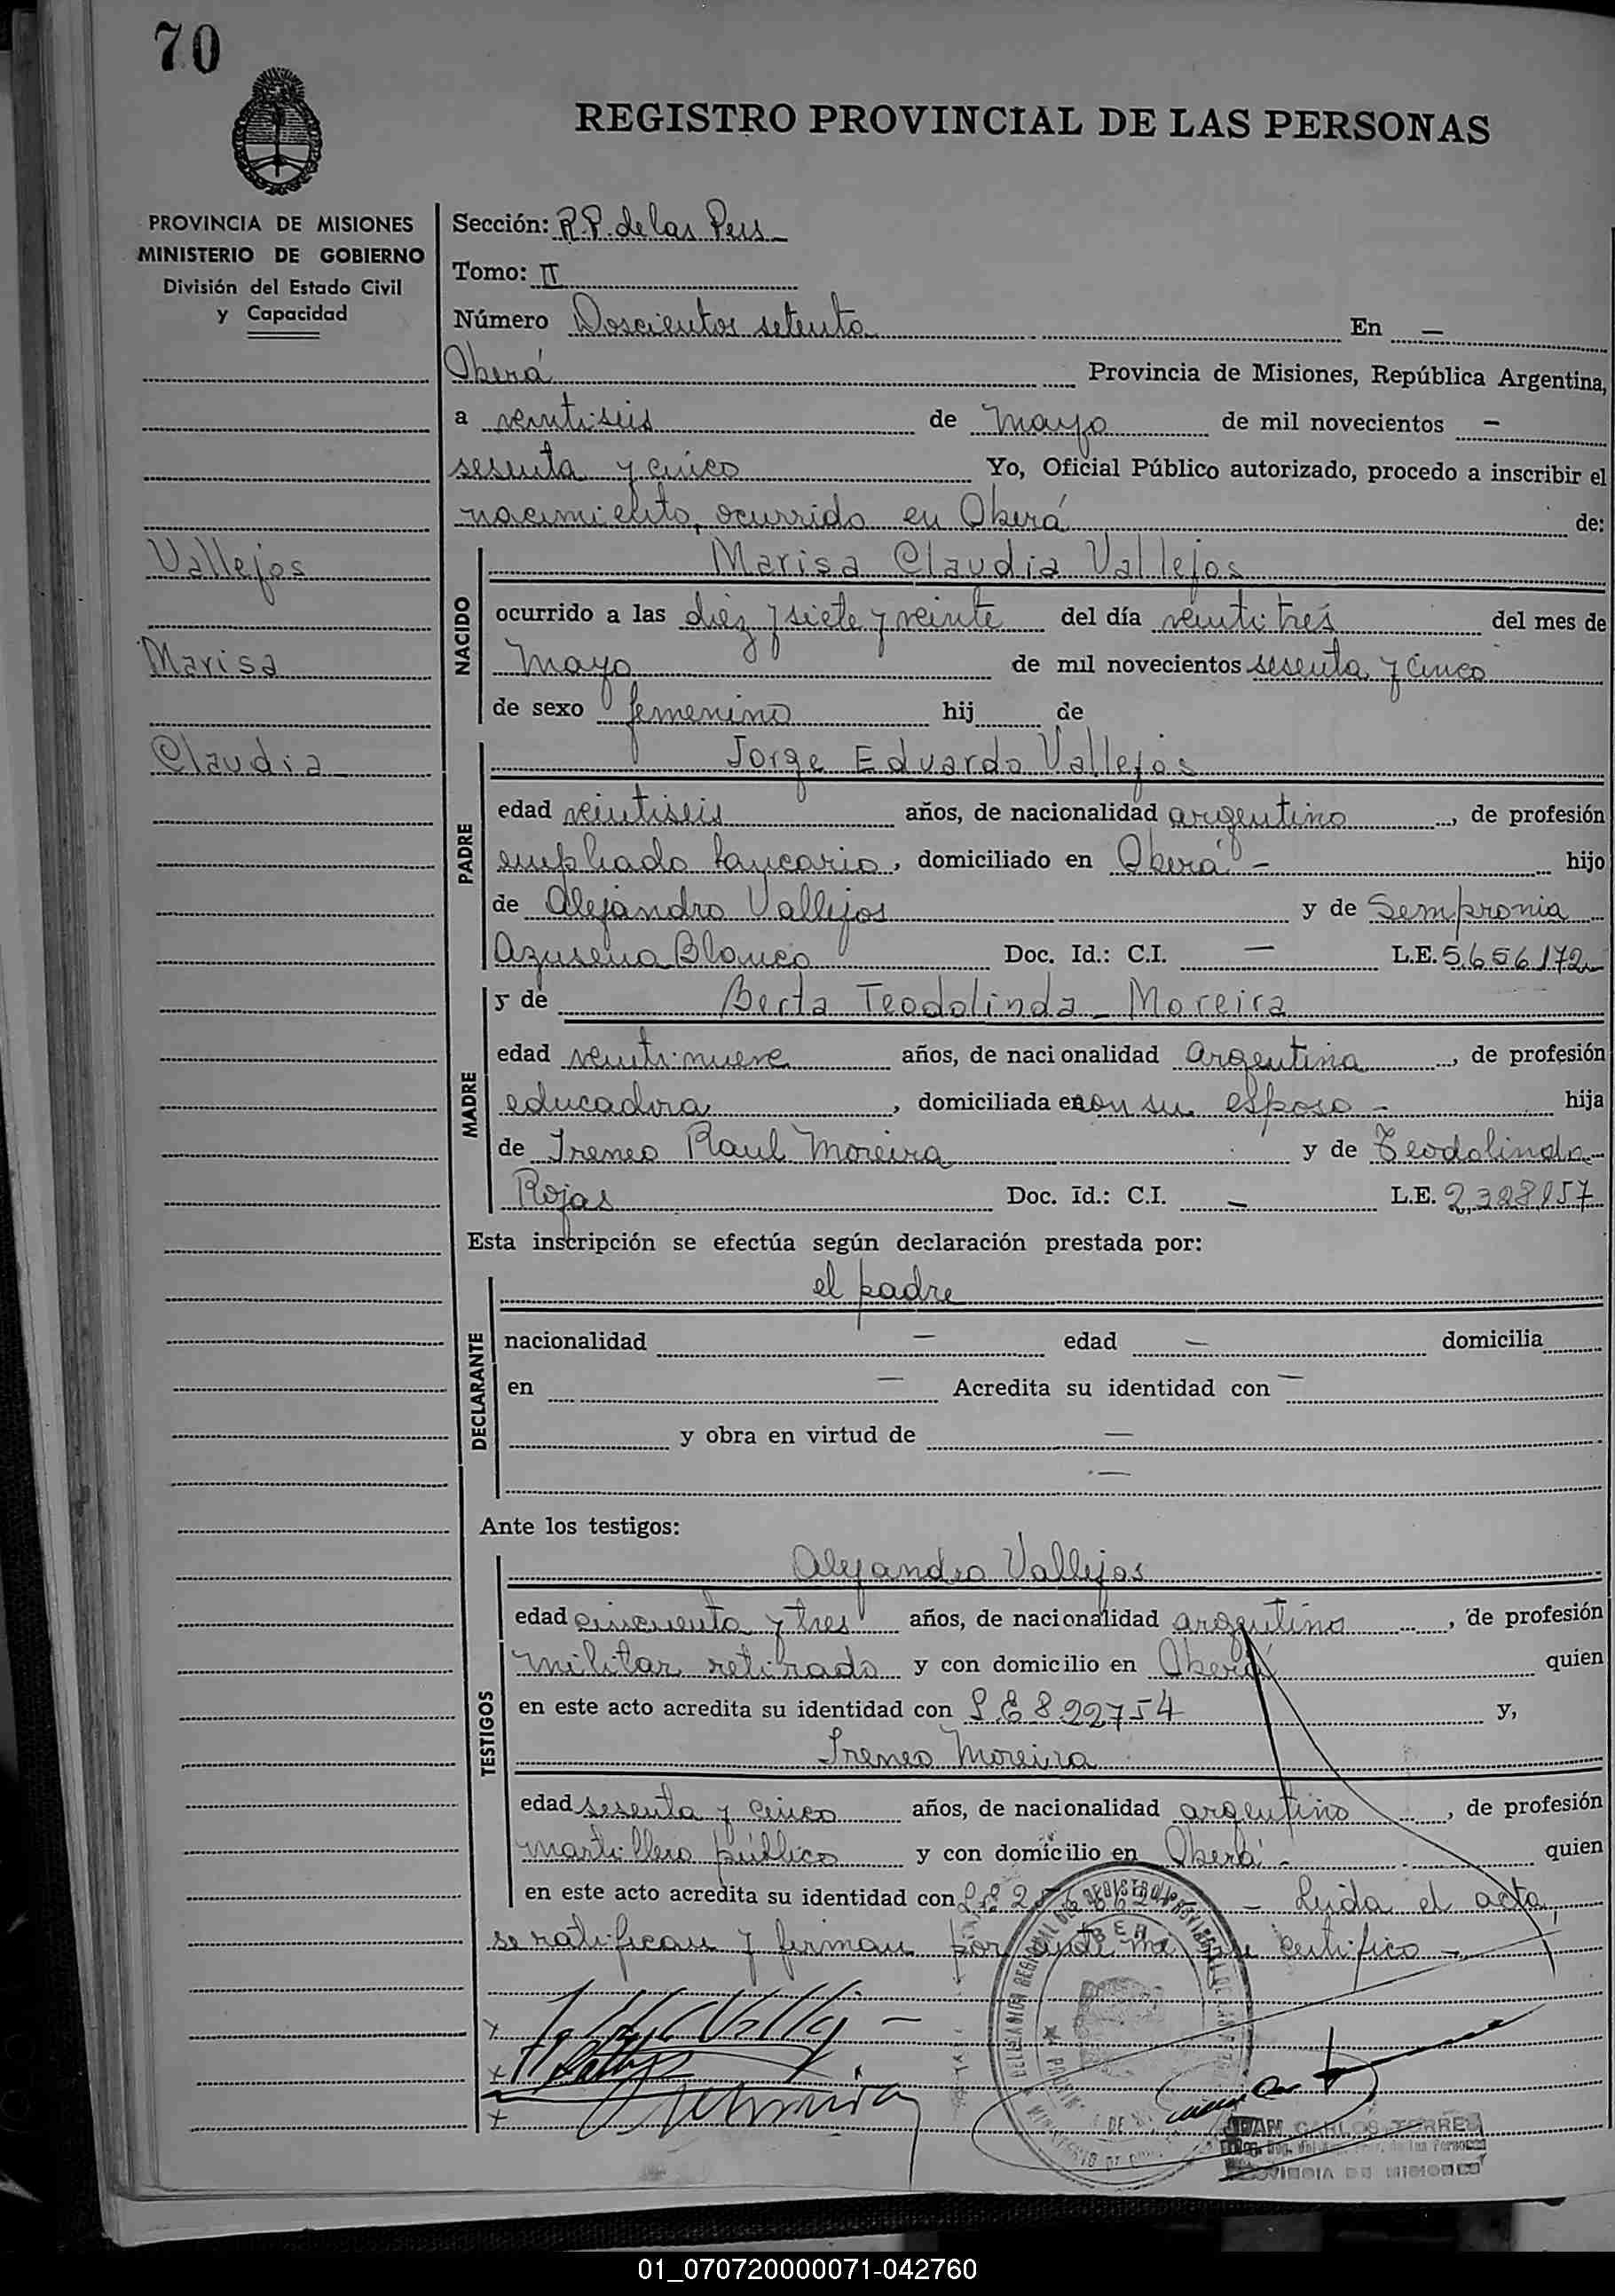 70
REGISTRO PROVINCIAL DE LAS PERSONAS
PROVINCIA DE MISIONES
MINISTERIO DE GOBIERNO
División del Estado Civil
y Capacidad
Vallejos
Marisa
Claudia
Sección: R.P. de las Pers
Tomo: II
Número Doscientos setenta En —
Oberá Provincia de Misiones, República Argentina,
a veintiseis de mayo de mil novecientos —
sesenta y cinco Yo, Oficial Público autorizado, procedo a inscribir el
nacimiento, ocurrido en Oberá de:
NACIDO
Marisa Claudia Vallejos
ocurrido a las diez y siete y veinte del día veintitrés del mes de
mayo de mil novecientos sesenta y cinco
de sexo femenino hij de
PADRE
Jorge Eduardo Vallejos
edad veintiseis años, de nacionalidad argentino, de profesión
empleado bancario, domiciliado en Oberá - hijo
de Alejandro Vallejos y de Sempronia
Azusena Blanco Doc. Id.: C.I. — L.E. 5.656.172
MADRE
y de Berta Teodolinda Moreira
edad veintinueve años, de nacionalidad argentina, de profesión
educadora, domiciliada en con su esposo - hija
de Ireneo Raul Moreira y de Teodolinda
Rojas Doc. Id.: C.I. — L.E.
Esta inscripción se efectúa según declaración prestada por:
DECLARANTE
el padre
nacionalidad — edad — domicilia
en — Acredita su identidad con —
y obra en virtud de —
—
Ante los testigos:
TESTIGOS
Alejandro Vallejos
edad cincuenta y tres años, de nacionalidad argentino, de profesión
militar retirado y con domicilio en Oberá quien
en este acto acredita su identidad con L E 822754 y,
Ireneo Moreira
edad sesenta y cinco años, de nacionalidad argentino, de profesión
martillero público y con domicilio en Oberá - quien
en este acto acredita su identidad con L E — Leida el acta
se ratifican y firman por ante mi que certifico —
JUAN CARLOS TORRES
PROVINCIA DE MISIONES
01_070720000071-042760